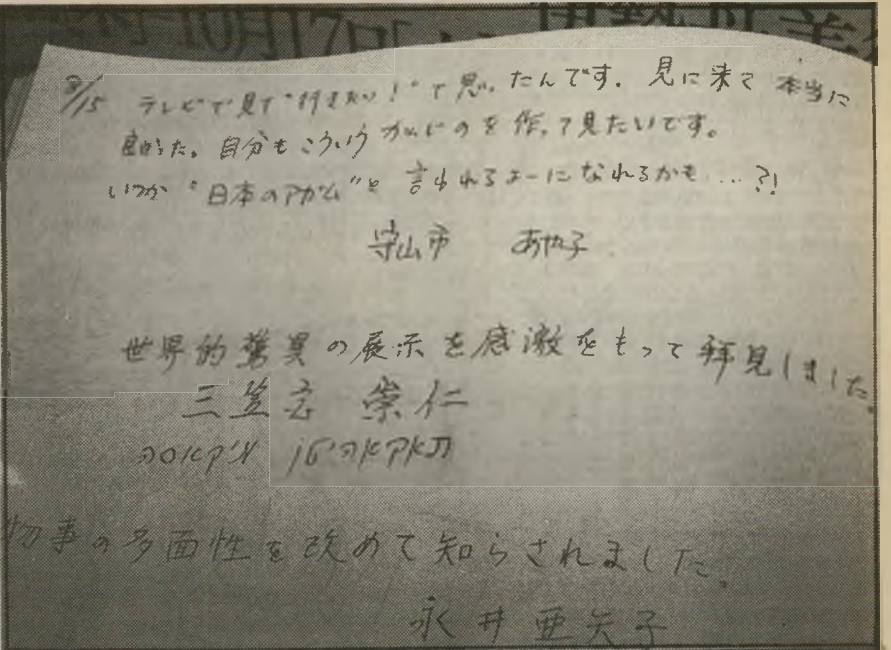 10月17日 伊勢丹美
8/15 テレビで見て"行きたい!"て思ったんです。見に来て 本当に
良かった。自分もこういうかんじのを作って見たいです。
いつか"日本のアガム"と言われるよーになれるかも…?!
守山市 あや子
世界的驚異の展示を感激をもって拝見しました。
三笠宮 崇仁
物事の多面性を改めて知らされました。
永井亜矢子